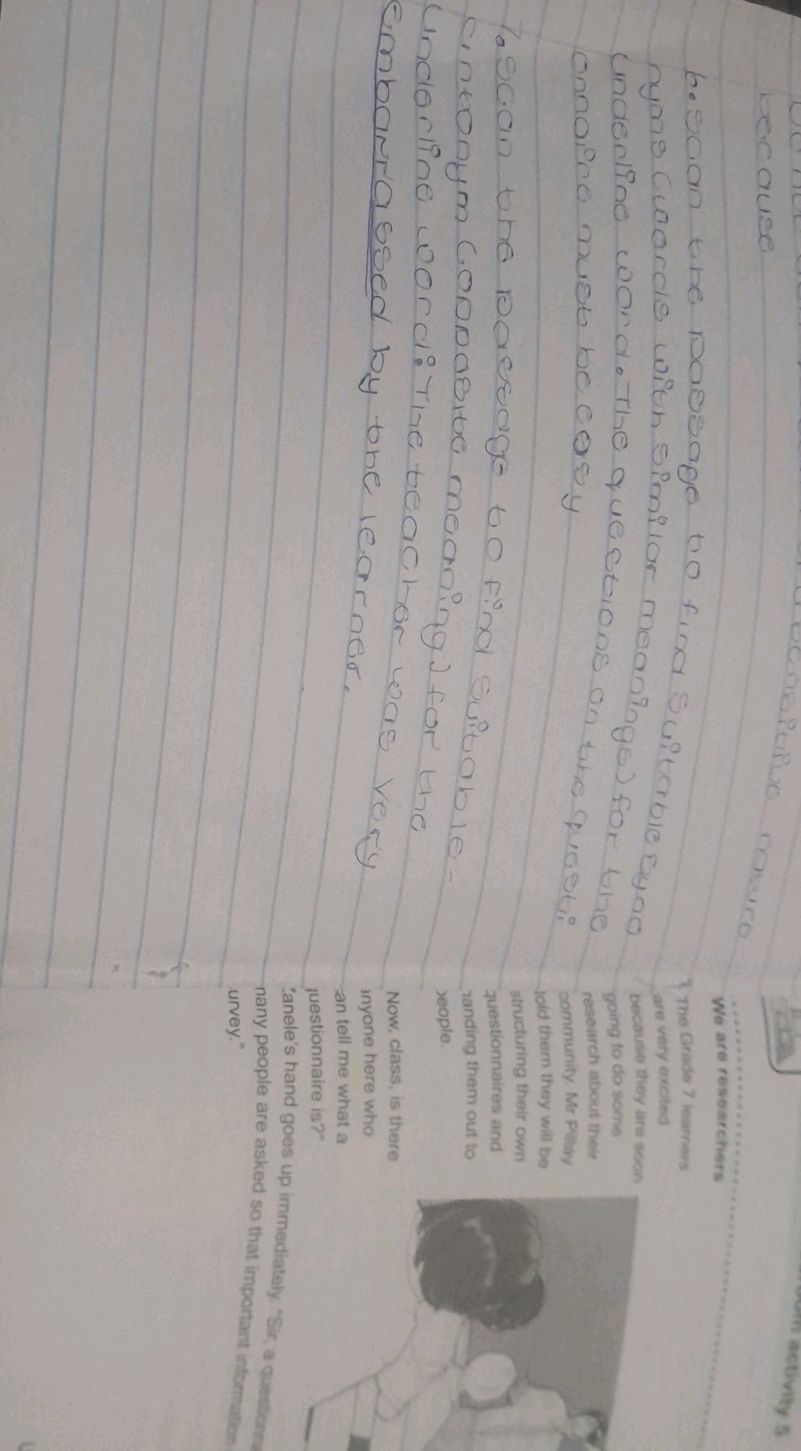 because
6. Scan the passage to find suitable syno
nyms (words with similar meanings) for the
underline word. The questions on the questi
onnaire must be easy
7. Scan the passage to find suitable -
antonym (opposite meaning) for the
underline word: The teacher was very
embarrassed by the learner.
activity 5
We are researchers
The Grade 7 learners
are very excited
because they are soon
going to do some
research about their
community. Mr Pillay
told them they will be
structuring their own
questionnaires and
handing them out to
people.
Now, class, is there
anyone here who
can tell me what a
questionnaire is?"
anele's hand goes up immediately. "Sir, a questionna
many people are asked so that important information
urvey."